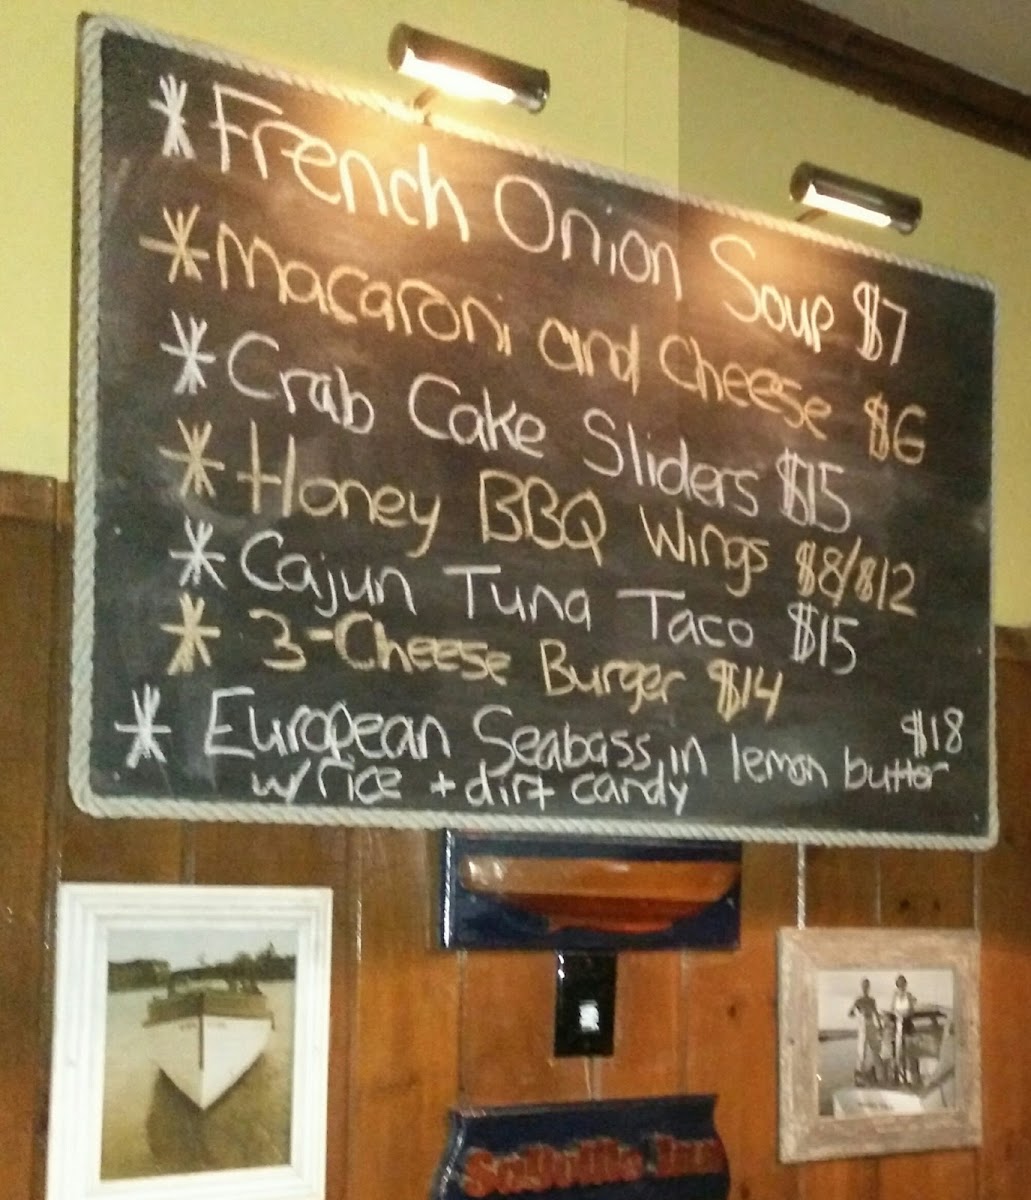 * French Onion Soup $7
* Macaroni and Cheese $6
* Crab Cake Sliders $15
* Honey BBQ Wings $8/$12
* Cajun Tuna Taco $15
* 3-Cheese Burger $14
* European Seabass in lemon butter $18
w/rice + dirt candy